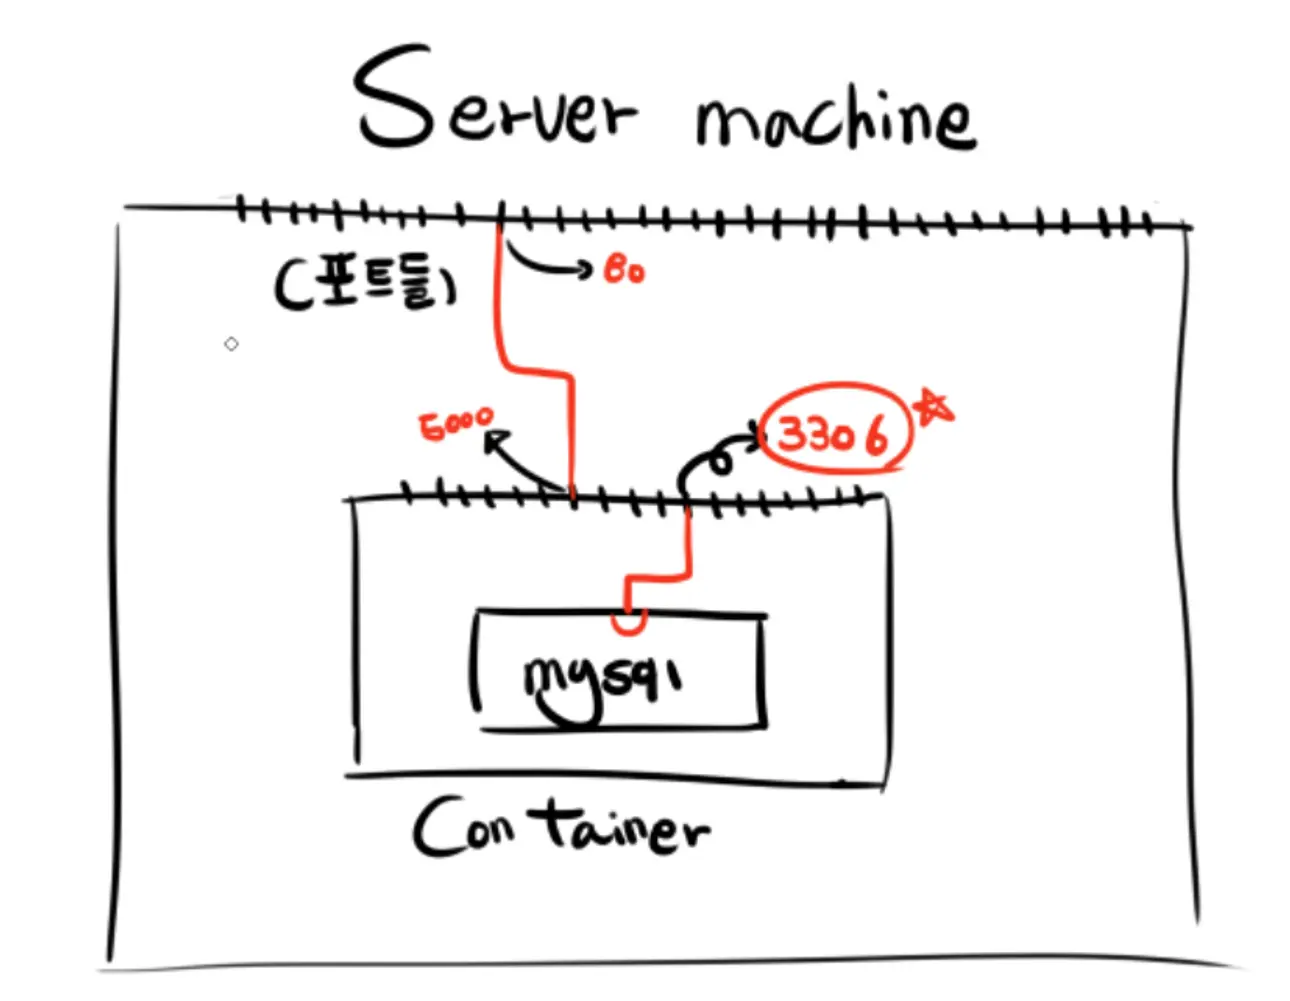 Server machine
(포트들)
80
5000
3306
mysql
Container